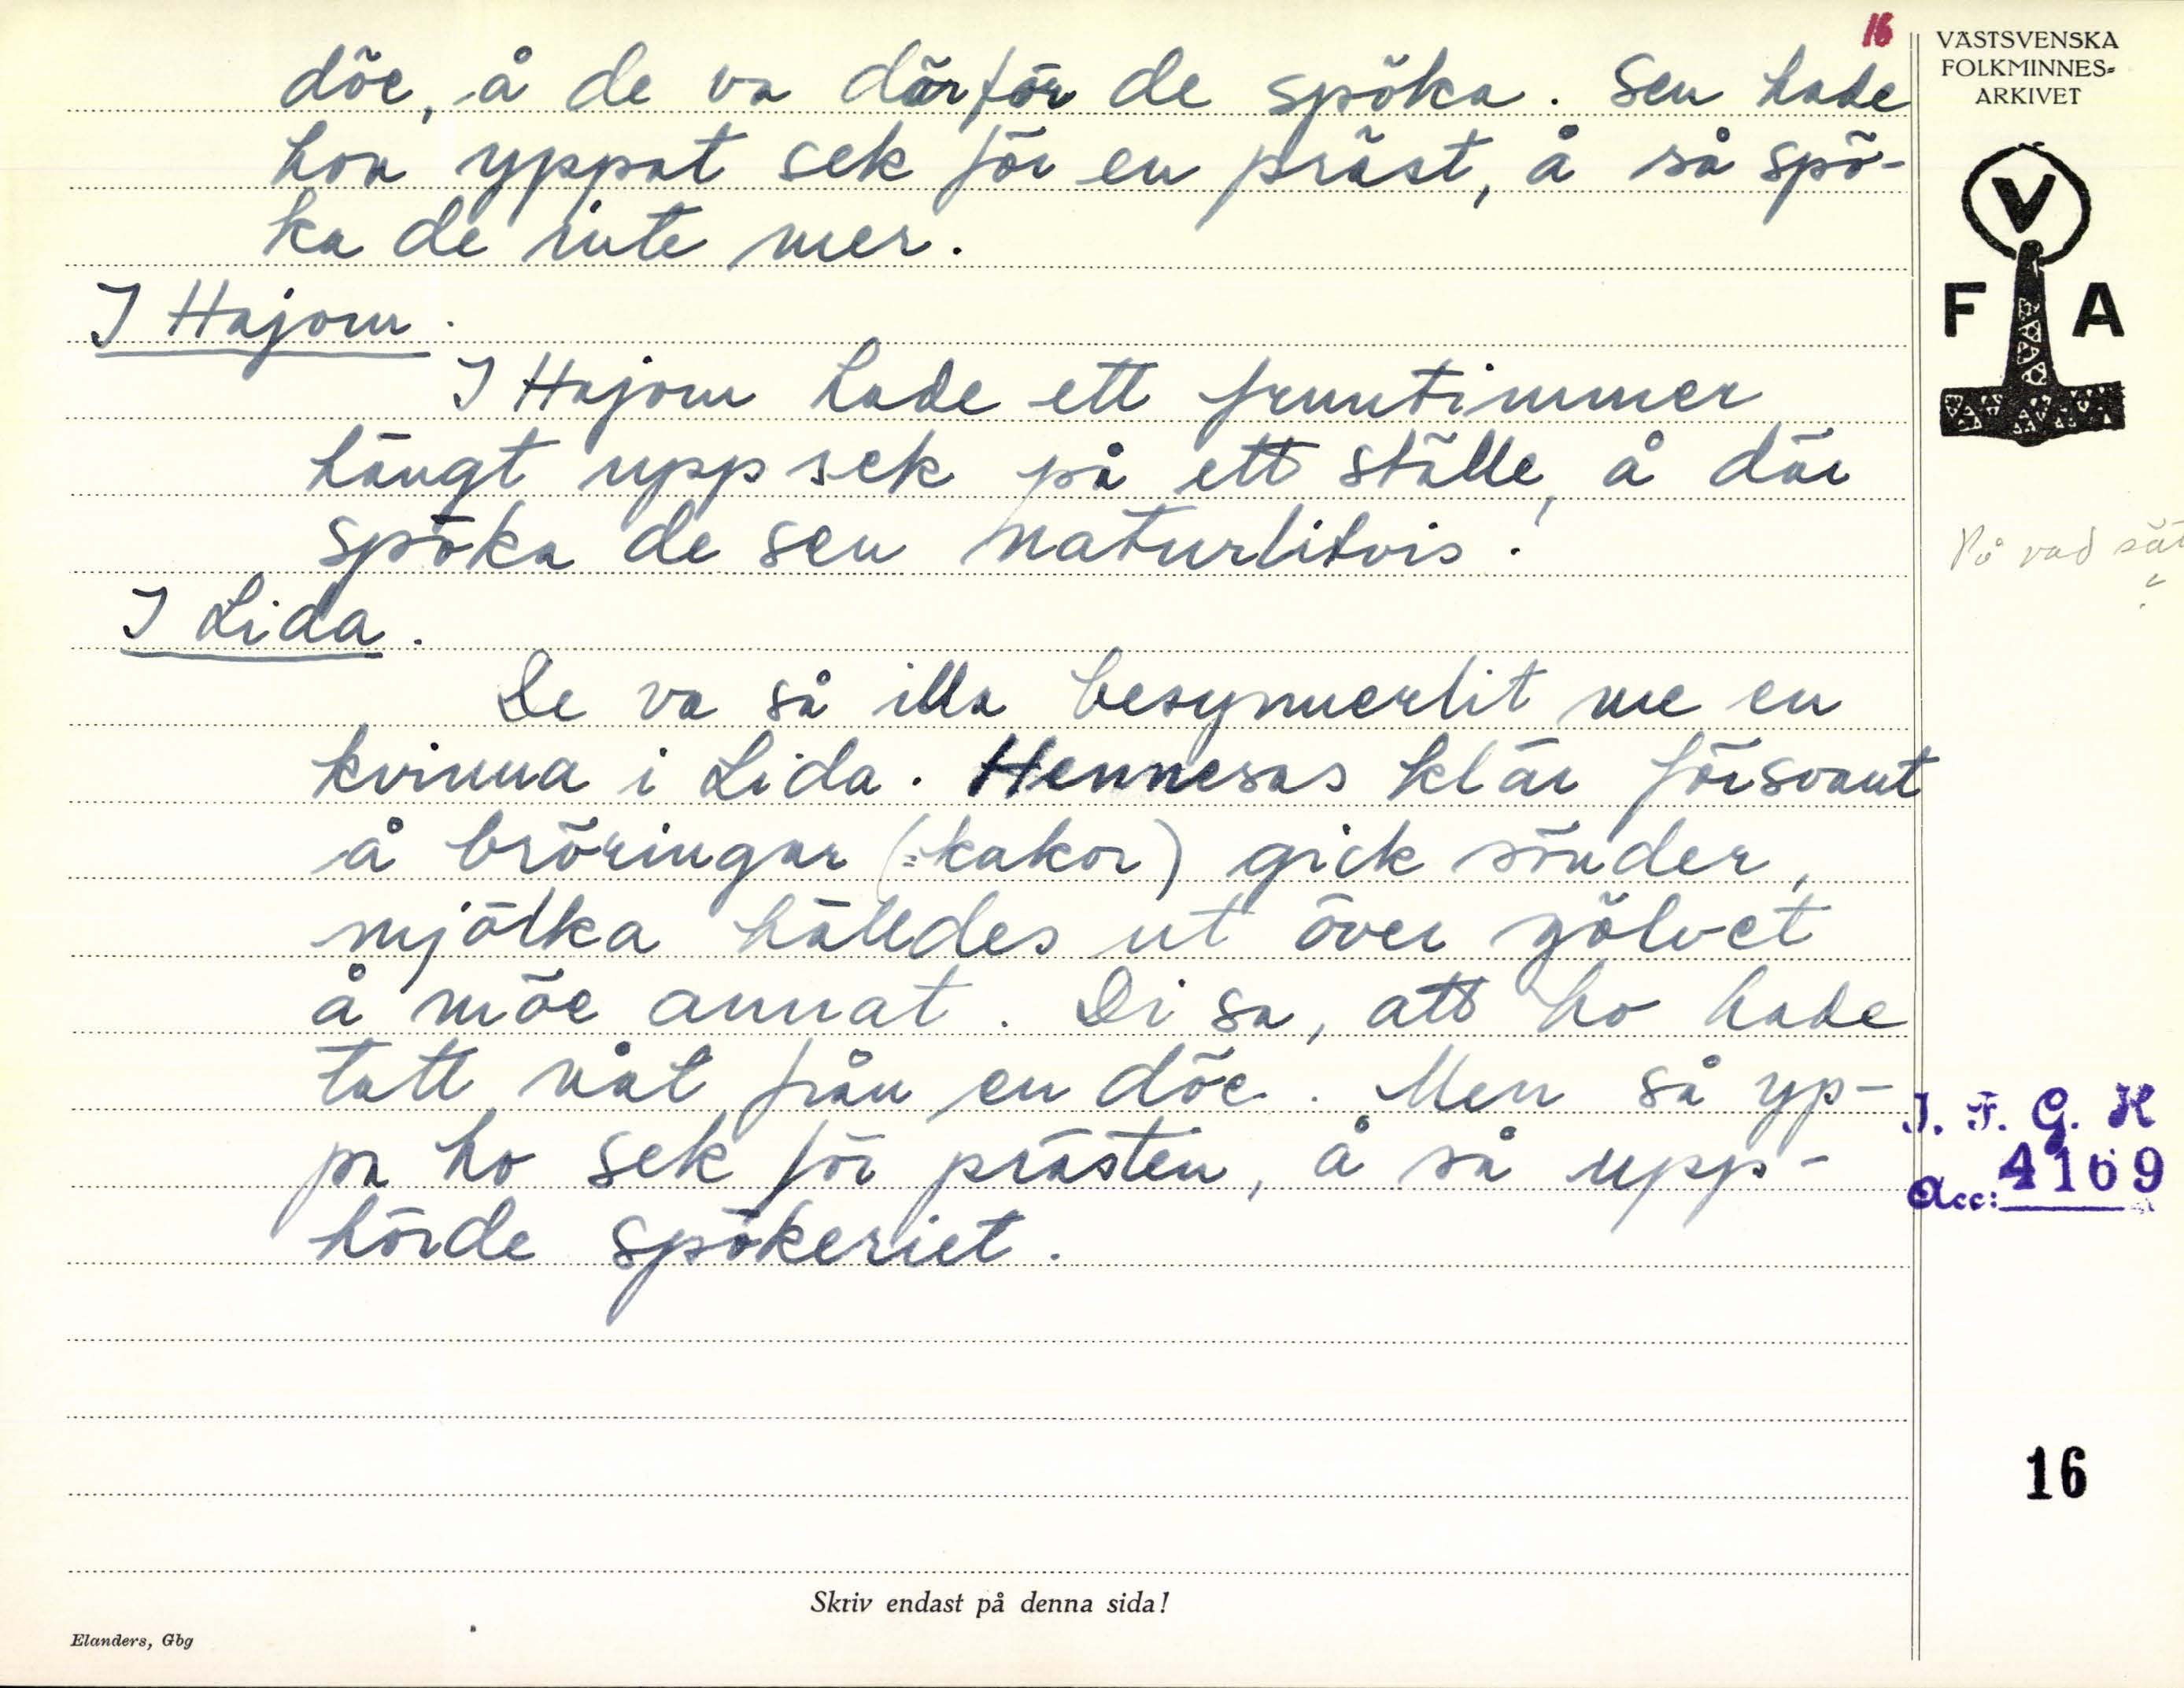 16
VÄSTSVENSKA
FOLKMINNES-
ARKIVET
V
F A
döe, å de va därför de spöka. Sen hade
hon yppat sek för en präst, å så spö-
ka de inte mer.
I Hajom.
I Hajom hade ett fruntimmer
hängt upp sek på ett ställe, å där
spöka de sen naturlitvis.
På vad sät
I Lida.
De va så illa besynnerlit me en
kvinna i Lida. Hennesas klär försvant
å bröringar (=kakor) gick sönder,
mjölka hälldes ut över gölvet
å möe annat. Di sa, att ho hade
tatt nåt från en döe. Men så yp-
pa ho sek för prästen, å så upp-
hörde spökeriet.
I. F. G. H
Acc: 4169
16
Skriv endast på denna sida!
Elanders, Gbg